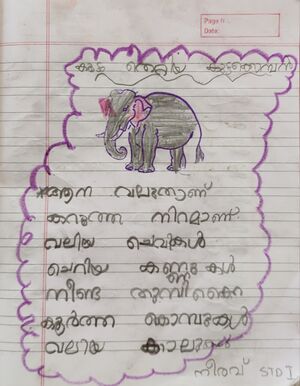 Page No.
Date:
കൂട്ടം തെറ്റിയ കുട്ടിക്കൊമ്പൻ
ആന വലുതാണ്
കറുത്ത നിറമാണ്
വലിയ ചെവികൾ
ചെറിയ കണ്ണുകൾ
നീണ്ട തുമ്പിക്കൈ
കൂർത്ത കൊമ്പുകൾ
വലിയ കാലുകൾ
നീരവ് STD I